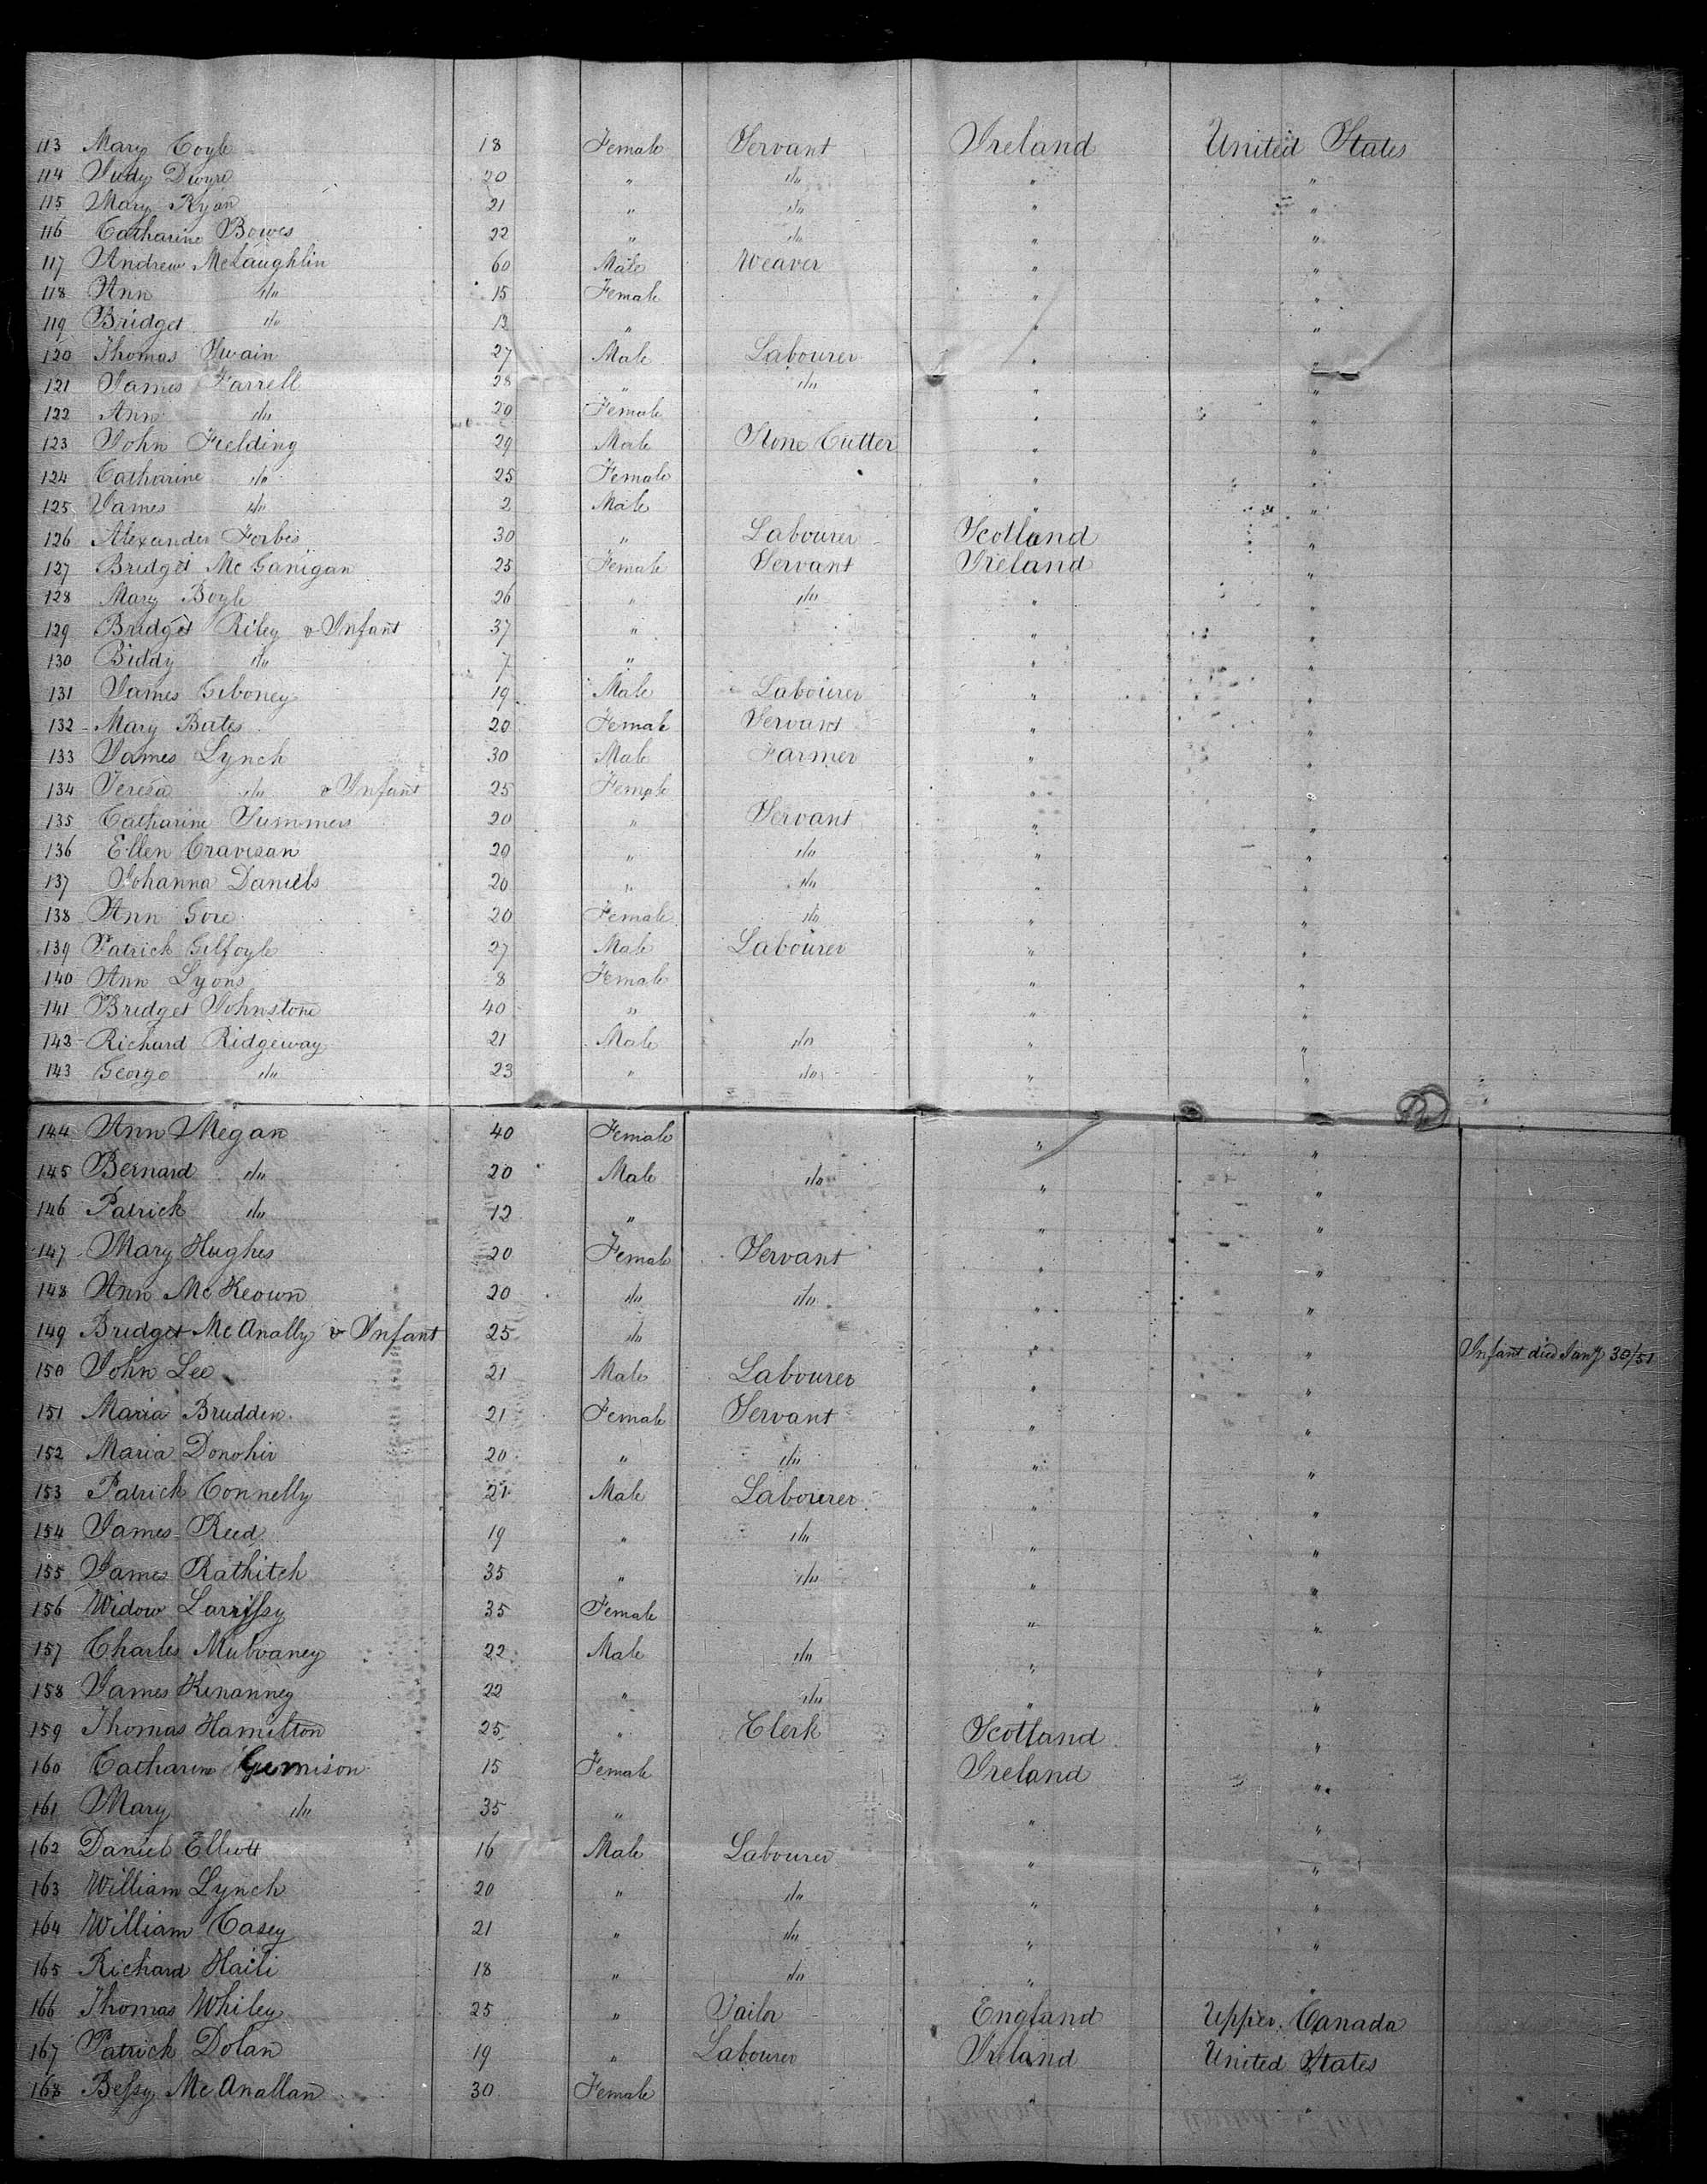 113 Mary Coyle 18 Female Servant Ireland United States
114 Judy Dwyre 20 " do " "
115 Mary Ryan 21 " do " "
116 Catharine Bowes 22 " do " "
117 Andrew McLaughlin 60 Male Weaver " "
118 Ann do 15 Female " "
119 Bridget do 12 " " "
120 Thomas Swain 27 Male Labourer " "
121 James Farrell 28 " do " "
122 Ann do 20 Female " "
123 John Fielding 29 Male Stone Cutter " "
124 Catharine do 25 Female " "
125 James do 2 Male " "
126 Alexander Forbes 30 " Labourer Scotland "
127 Bridget McGanigan 25 Female Servant Ireland "
128 Mary Boyle 26 " do " "
129 Bridget Riley & Infant 37 " " "
130 Biddy do 7 " " "
131 James Giboney 19 Male Labourer " "
132 Mary Bates 20 Female Servant " "
133 James Lynch 30 Male Farmer " "
134 Teresa do & Infant 25 Female " "
135 Catharine Summers 20 " Servant " "
136 Ellen Cravesan 20 " do " "
137 Johanna Daniels 20 " do " "
138 Ann Gore 20 Female do " "
139 Patrick Gilfoyle 27 Male Labourer " "
140 Ann Lyons 8 Female " "
141 Bridget Johnstone 40 " " "
143 Richard Ridgeway 21 Male do " "
143 George do 23 " do " "
144 Ann Megan 40 Female " "
145 Bernard do 20 Male do " "
146 Patrick do 12 " " "
147 Mary Hughes 20 Female Servant " "
148 Ann McKeown 20 do do " "
149 Bridget McAnally & Infant 25 do " " Infant died Jany 30/51
150 John Lee 21 Male Labourer " "
151 Maria Brudden 21 Female Servant " "
152 Maria Donohir 20 " do " "
153 Patrick Connelly 21 Male Labourer " "
154 James Reed 19 " do " "
155 James Rathitch 35 " do " "
156 Widow Larrissy 35 Female " "
157 Charles Mulvaney 22 Male do " "
158 James Kenanney 22 " do " "
159 Thomas Hamilton 25 " Clerk Scotland "
160 Catharine Gemison 15 Female Ireland "
161 Mary do 35 " " "
162 Daniel Elliott 16 Male Labourer " "
163 William Lynch 20 " do " "
164 William Casey 21 " do " "
165 Richard Haiti 18 " do " "
166 Thomas Whiley 25 " Tailor England Upper Canada
167 Patrick Dolan 19 " Labourer Ireland United States
168 Bessy McAnallan 30 Female " "